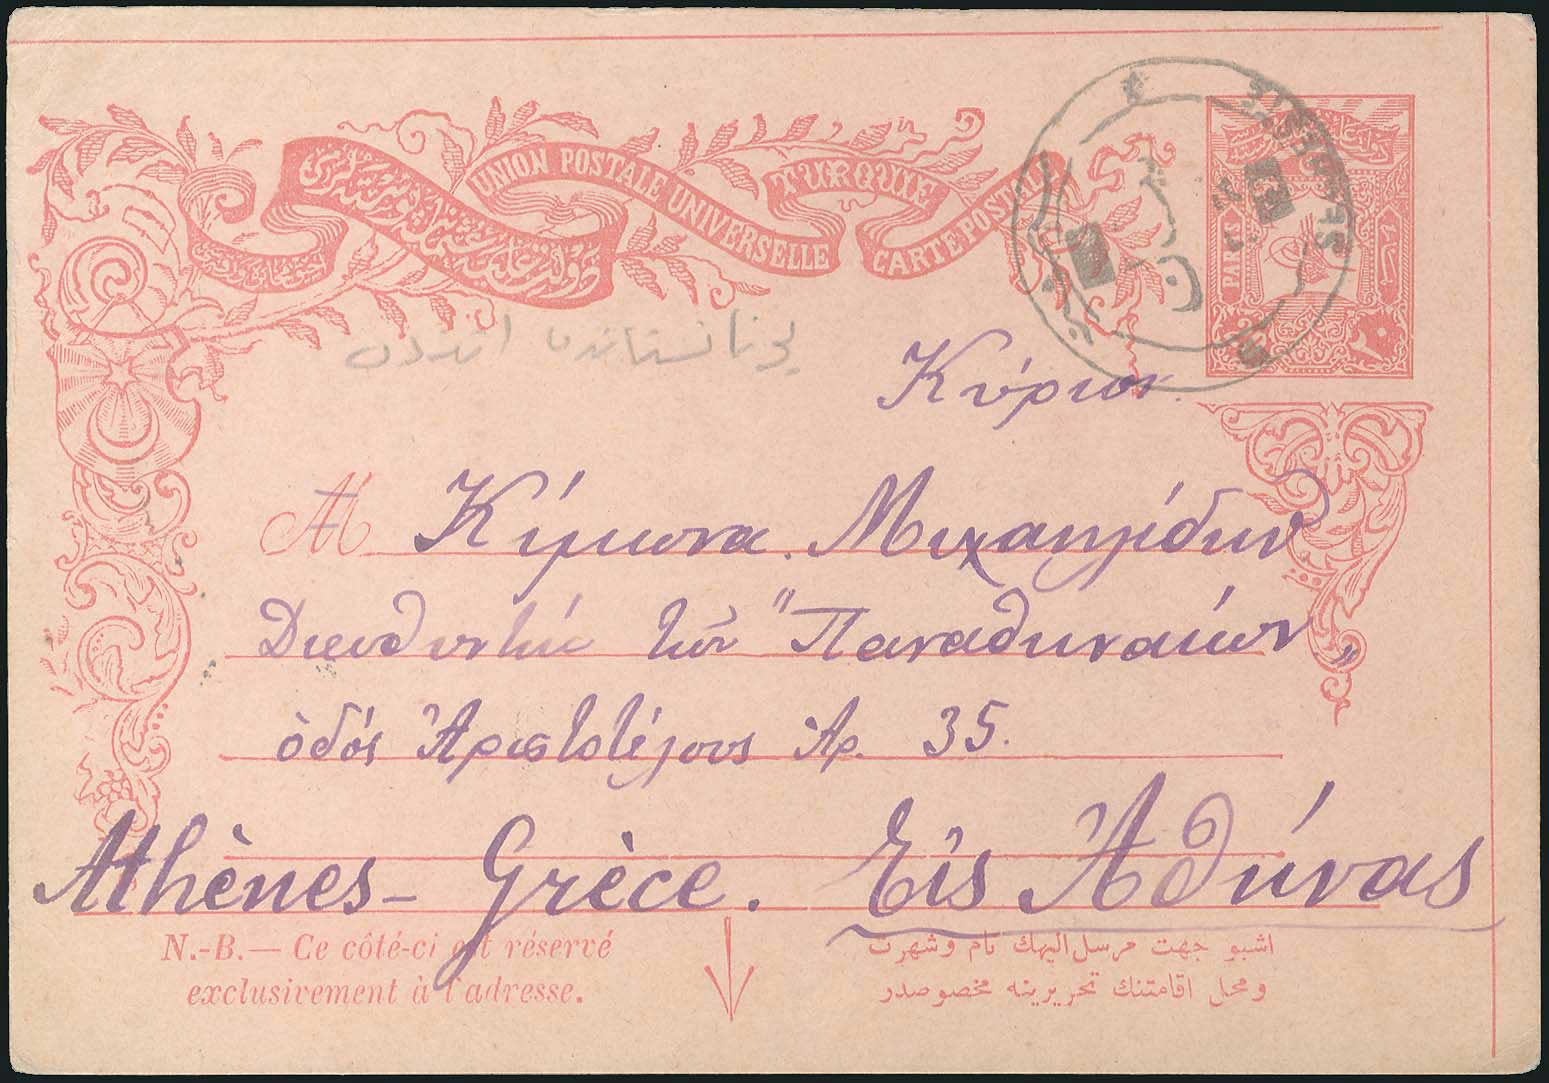 دولت عليۀ عثمانيه پوسته لری
UNION POSTALE UNIVERSELLE
TURQUIE
CARTE POSTALE
يونانستاندن
Κύριον
M Κίμωνα Μιχαηλίδην
Διευθυντὴν τῶν "Παναθηναίων"
ὁδός Ἀριστοτέλους Ἀρ. 35.
Athènes - Grèce. Εἰς Ἀθήνας
N.-B. — Ce côté-ci est réservé
exclusivement à l'adresse.
اشبو جهت مرسل اليهك نام و شهرت
و محل اقامتنك تحريرينه مخصوصدر
PARA
٢٠